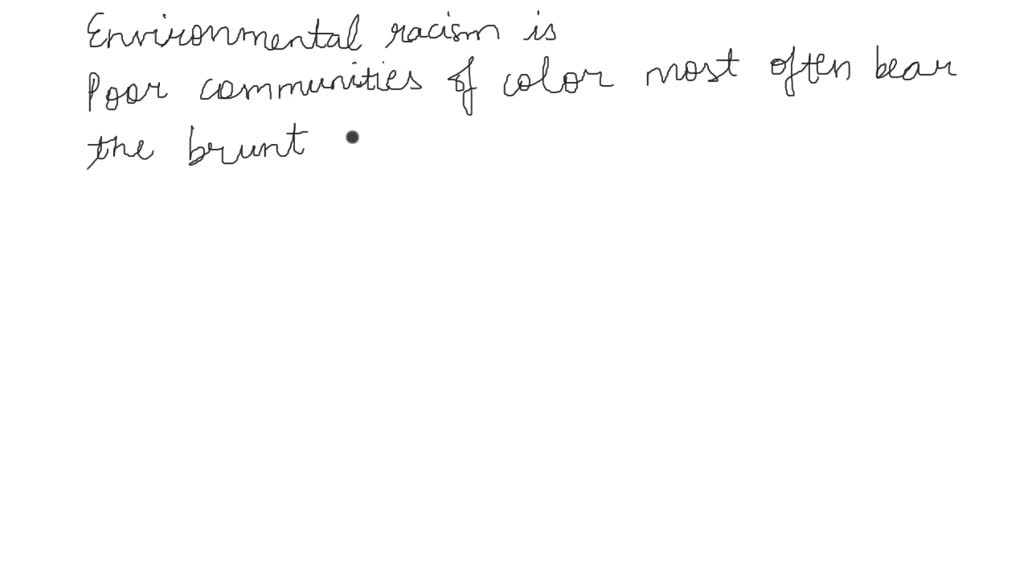 Environmental racism is
Poor communities of color most often bear
the brunt